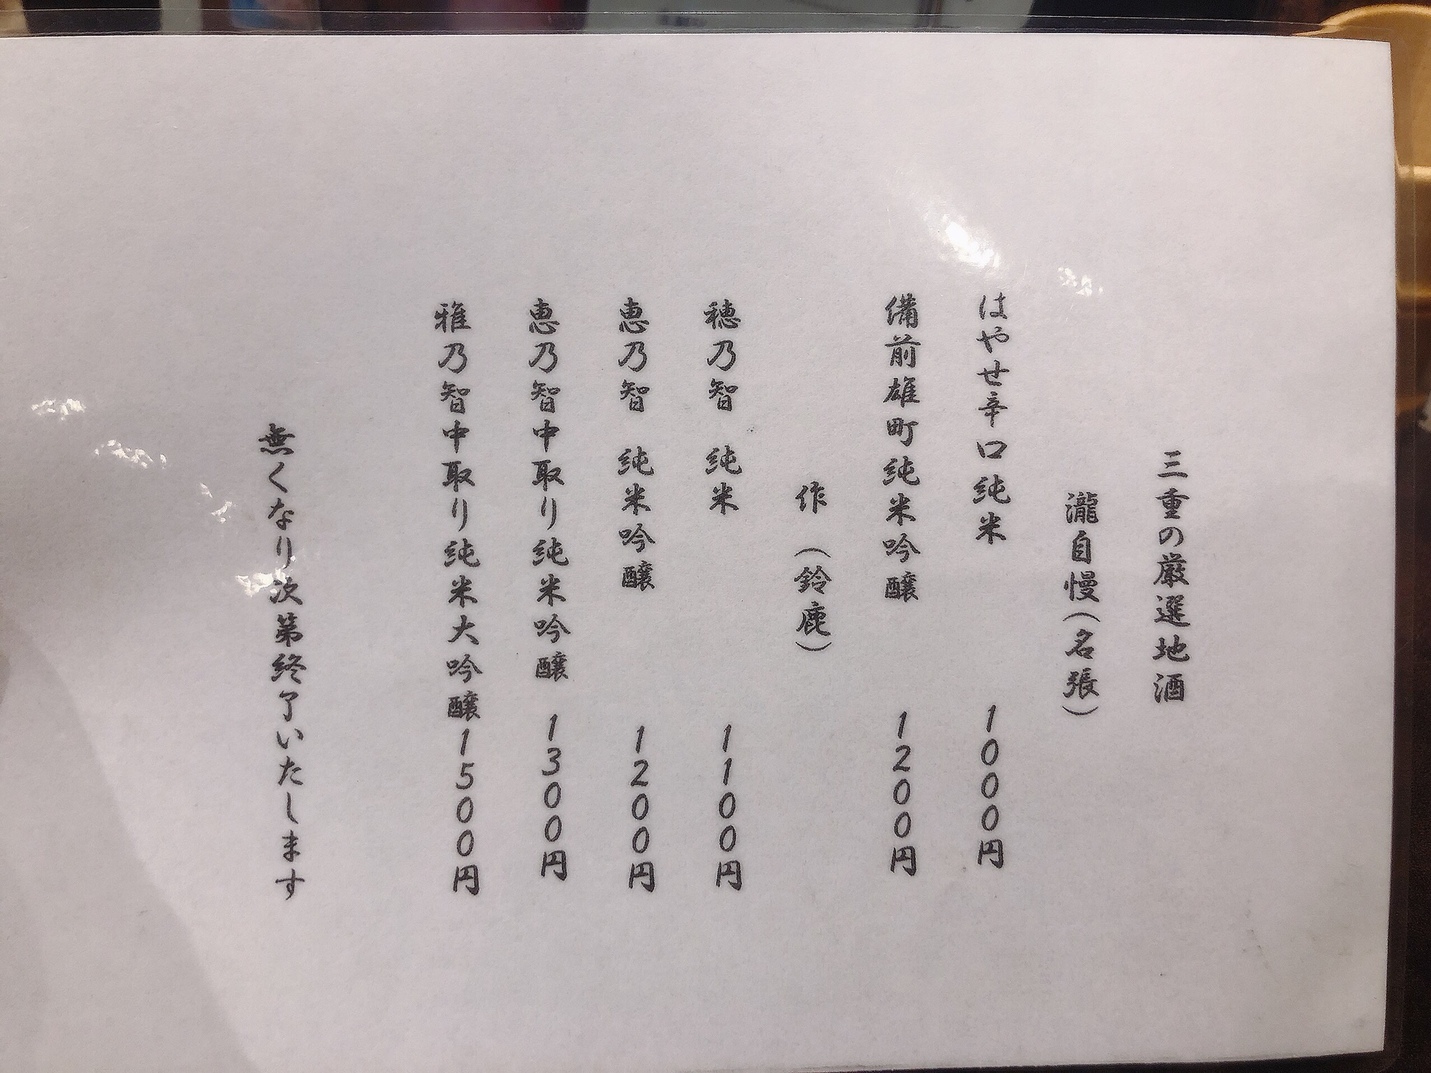 三重の厳選地酒
瀧自慢（名張）
はやせ辛口純米　1000円
備前雄町純米吟醸　1200円
作　（鈴鹿）
穂乃智　純米　1100円
恵乃智　純米吟醸　1200円
恵乃智中取り純米吟醸　1300円
雅乃智中取り純米大吟醸1500円
無くなり次第終了いたします